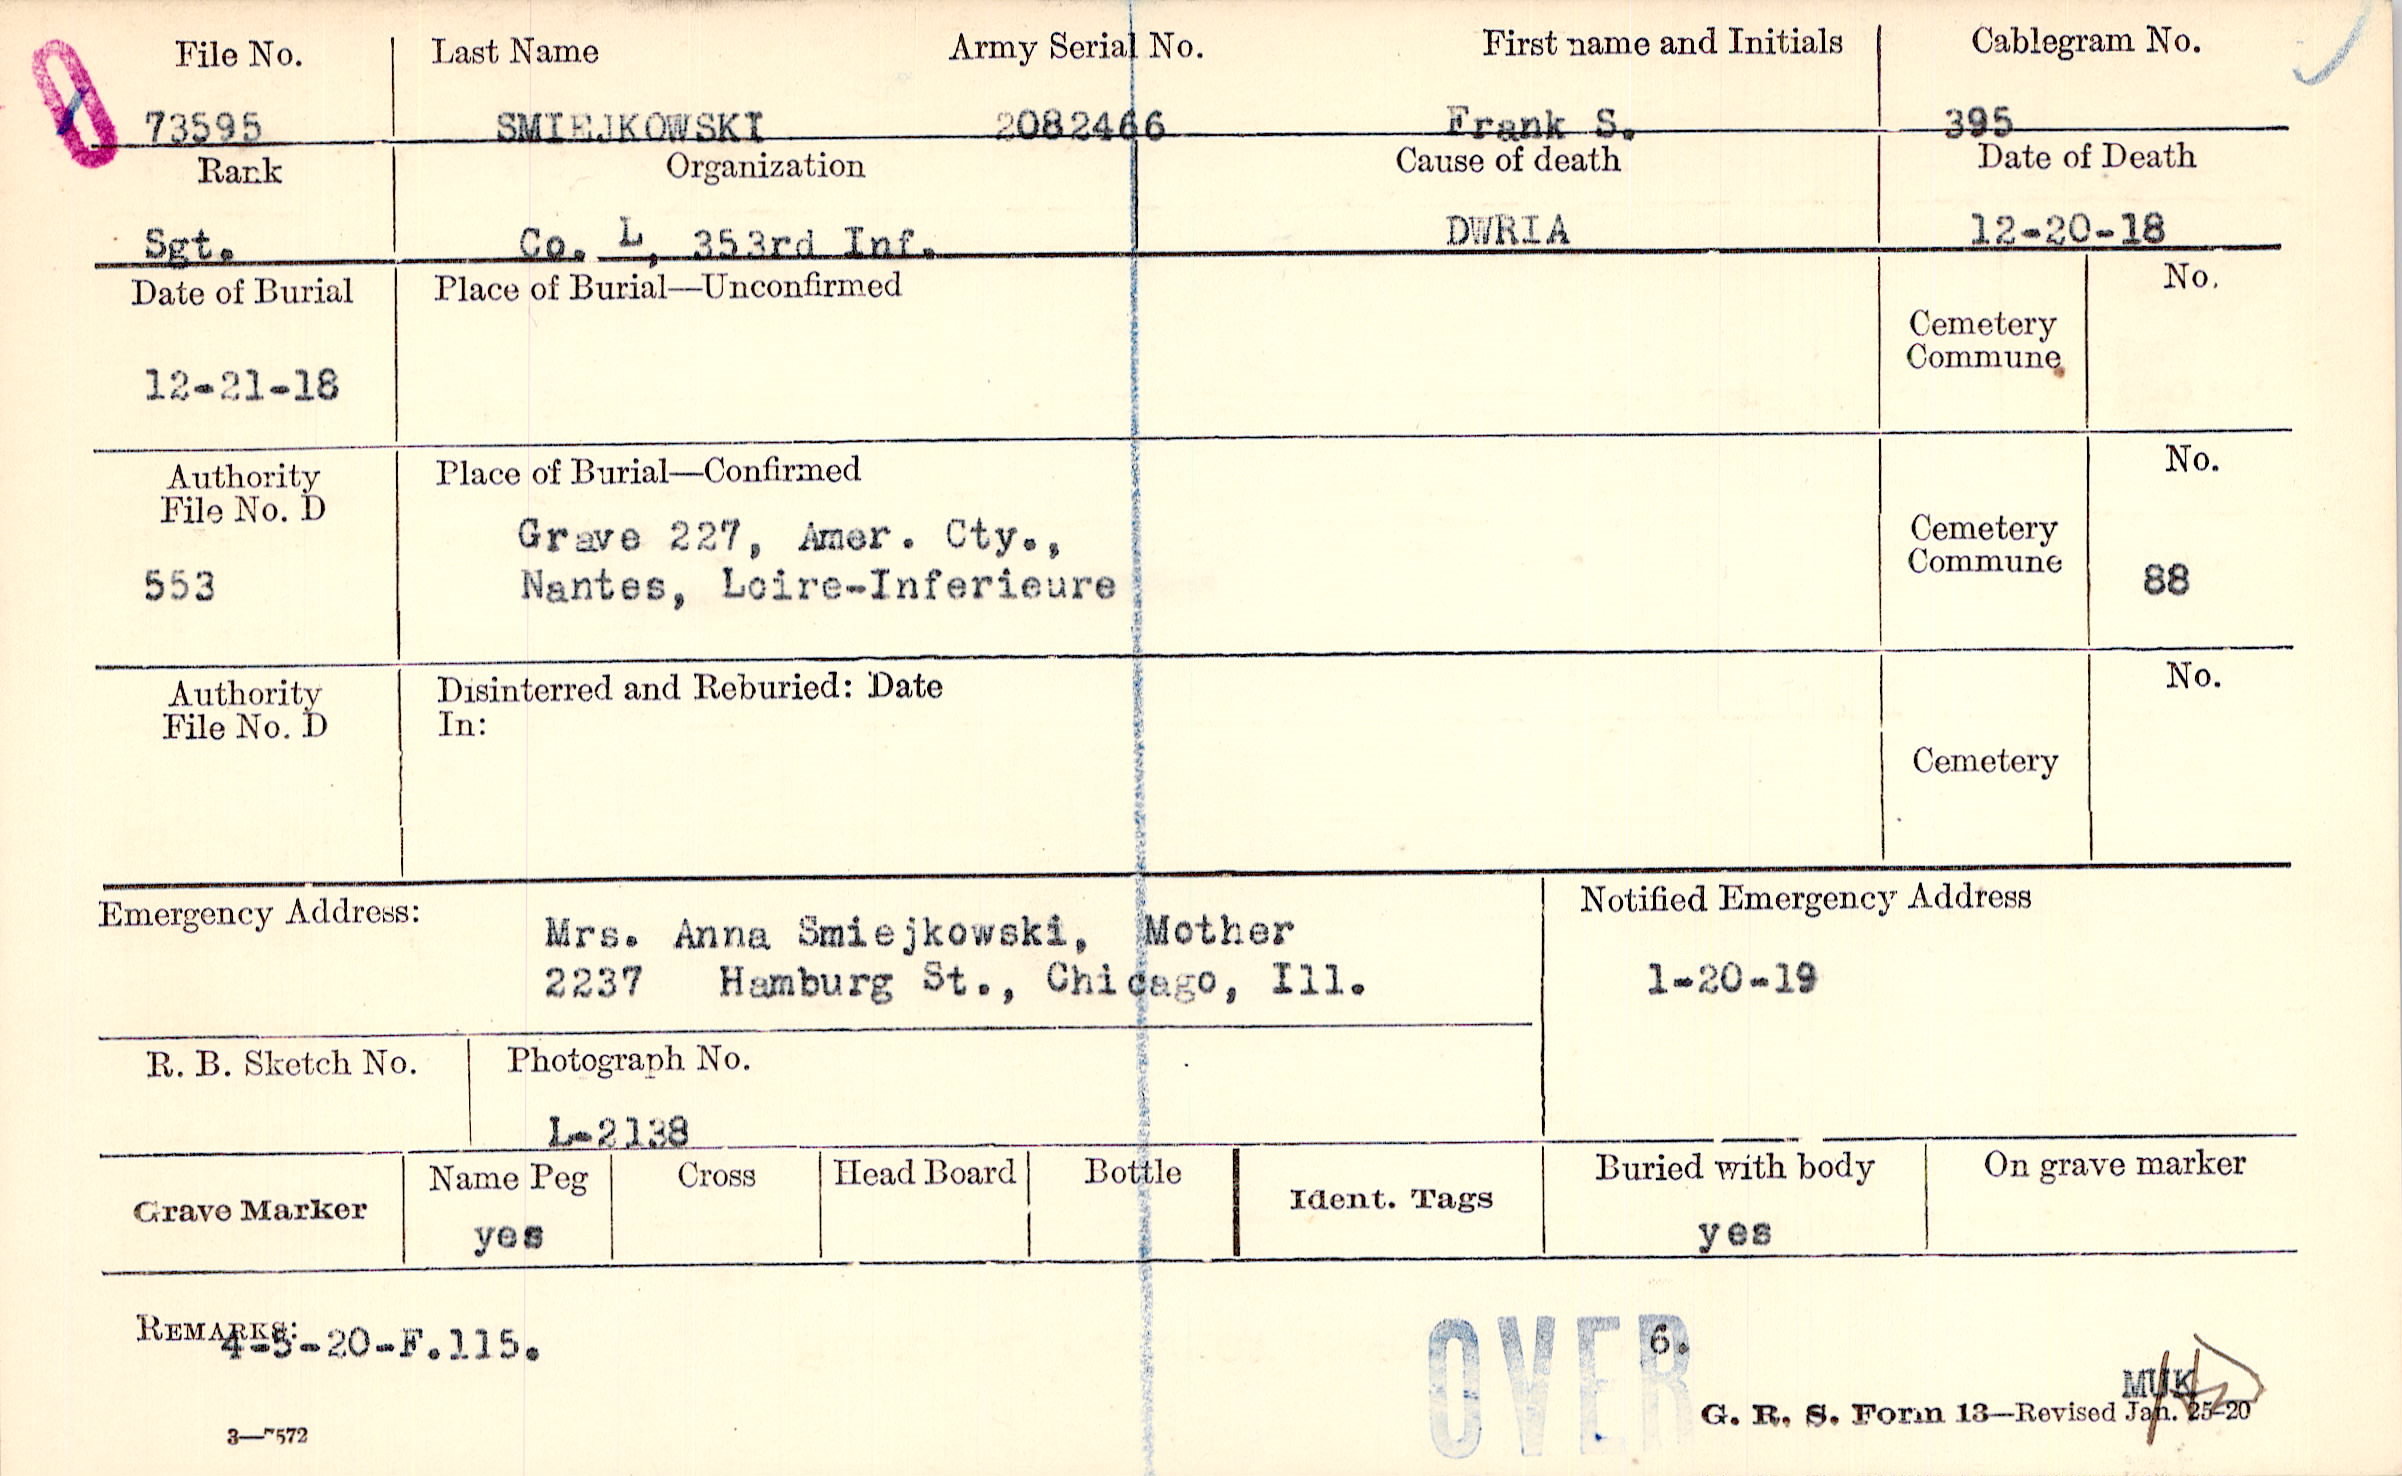 File No. Last Name Army Serial No. First name and Initials Cablegram No.
73595 SMIEJKOWSKI 2082466 Frank S. 395
Rank Organization Cause of death Date of Death
Sgt. Co. L, 353rd Inf. DWRIA 12-20-18
Date of Burial Place of Burial—Unconfirmed No.
Cemetery
Commune
12-21-18
Authority Place of Burial—Confirmed No.
File No. D
Grave 227, Amer. Cty., Cemetery
Commune
553 Nantes, Loire-Inferieure 88
Authority Disinterred and Reburied: Date No.
File No. D In:
Cemetery
Emergency Address: Notified Emergency Address
Mrs. Anna Smiejkowski, Mother
2237 Hamburg St., Chicago, Ill. 1-20-19
R. B. Sketch No. Photograph No.
L-2138
Grave Marker Name Peg Cross Head Board Bottle Ident. Tags Buried with body On grave marker
yes yes
REMARKS:
4-5-20-F.115. OVER 6.
MUK
G. R. S. Form 13—Revised Jan. 25-20
3—7572